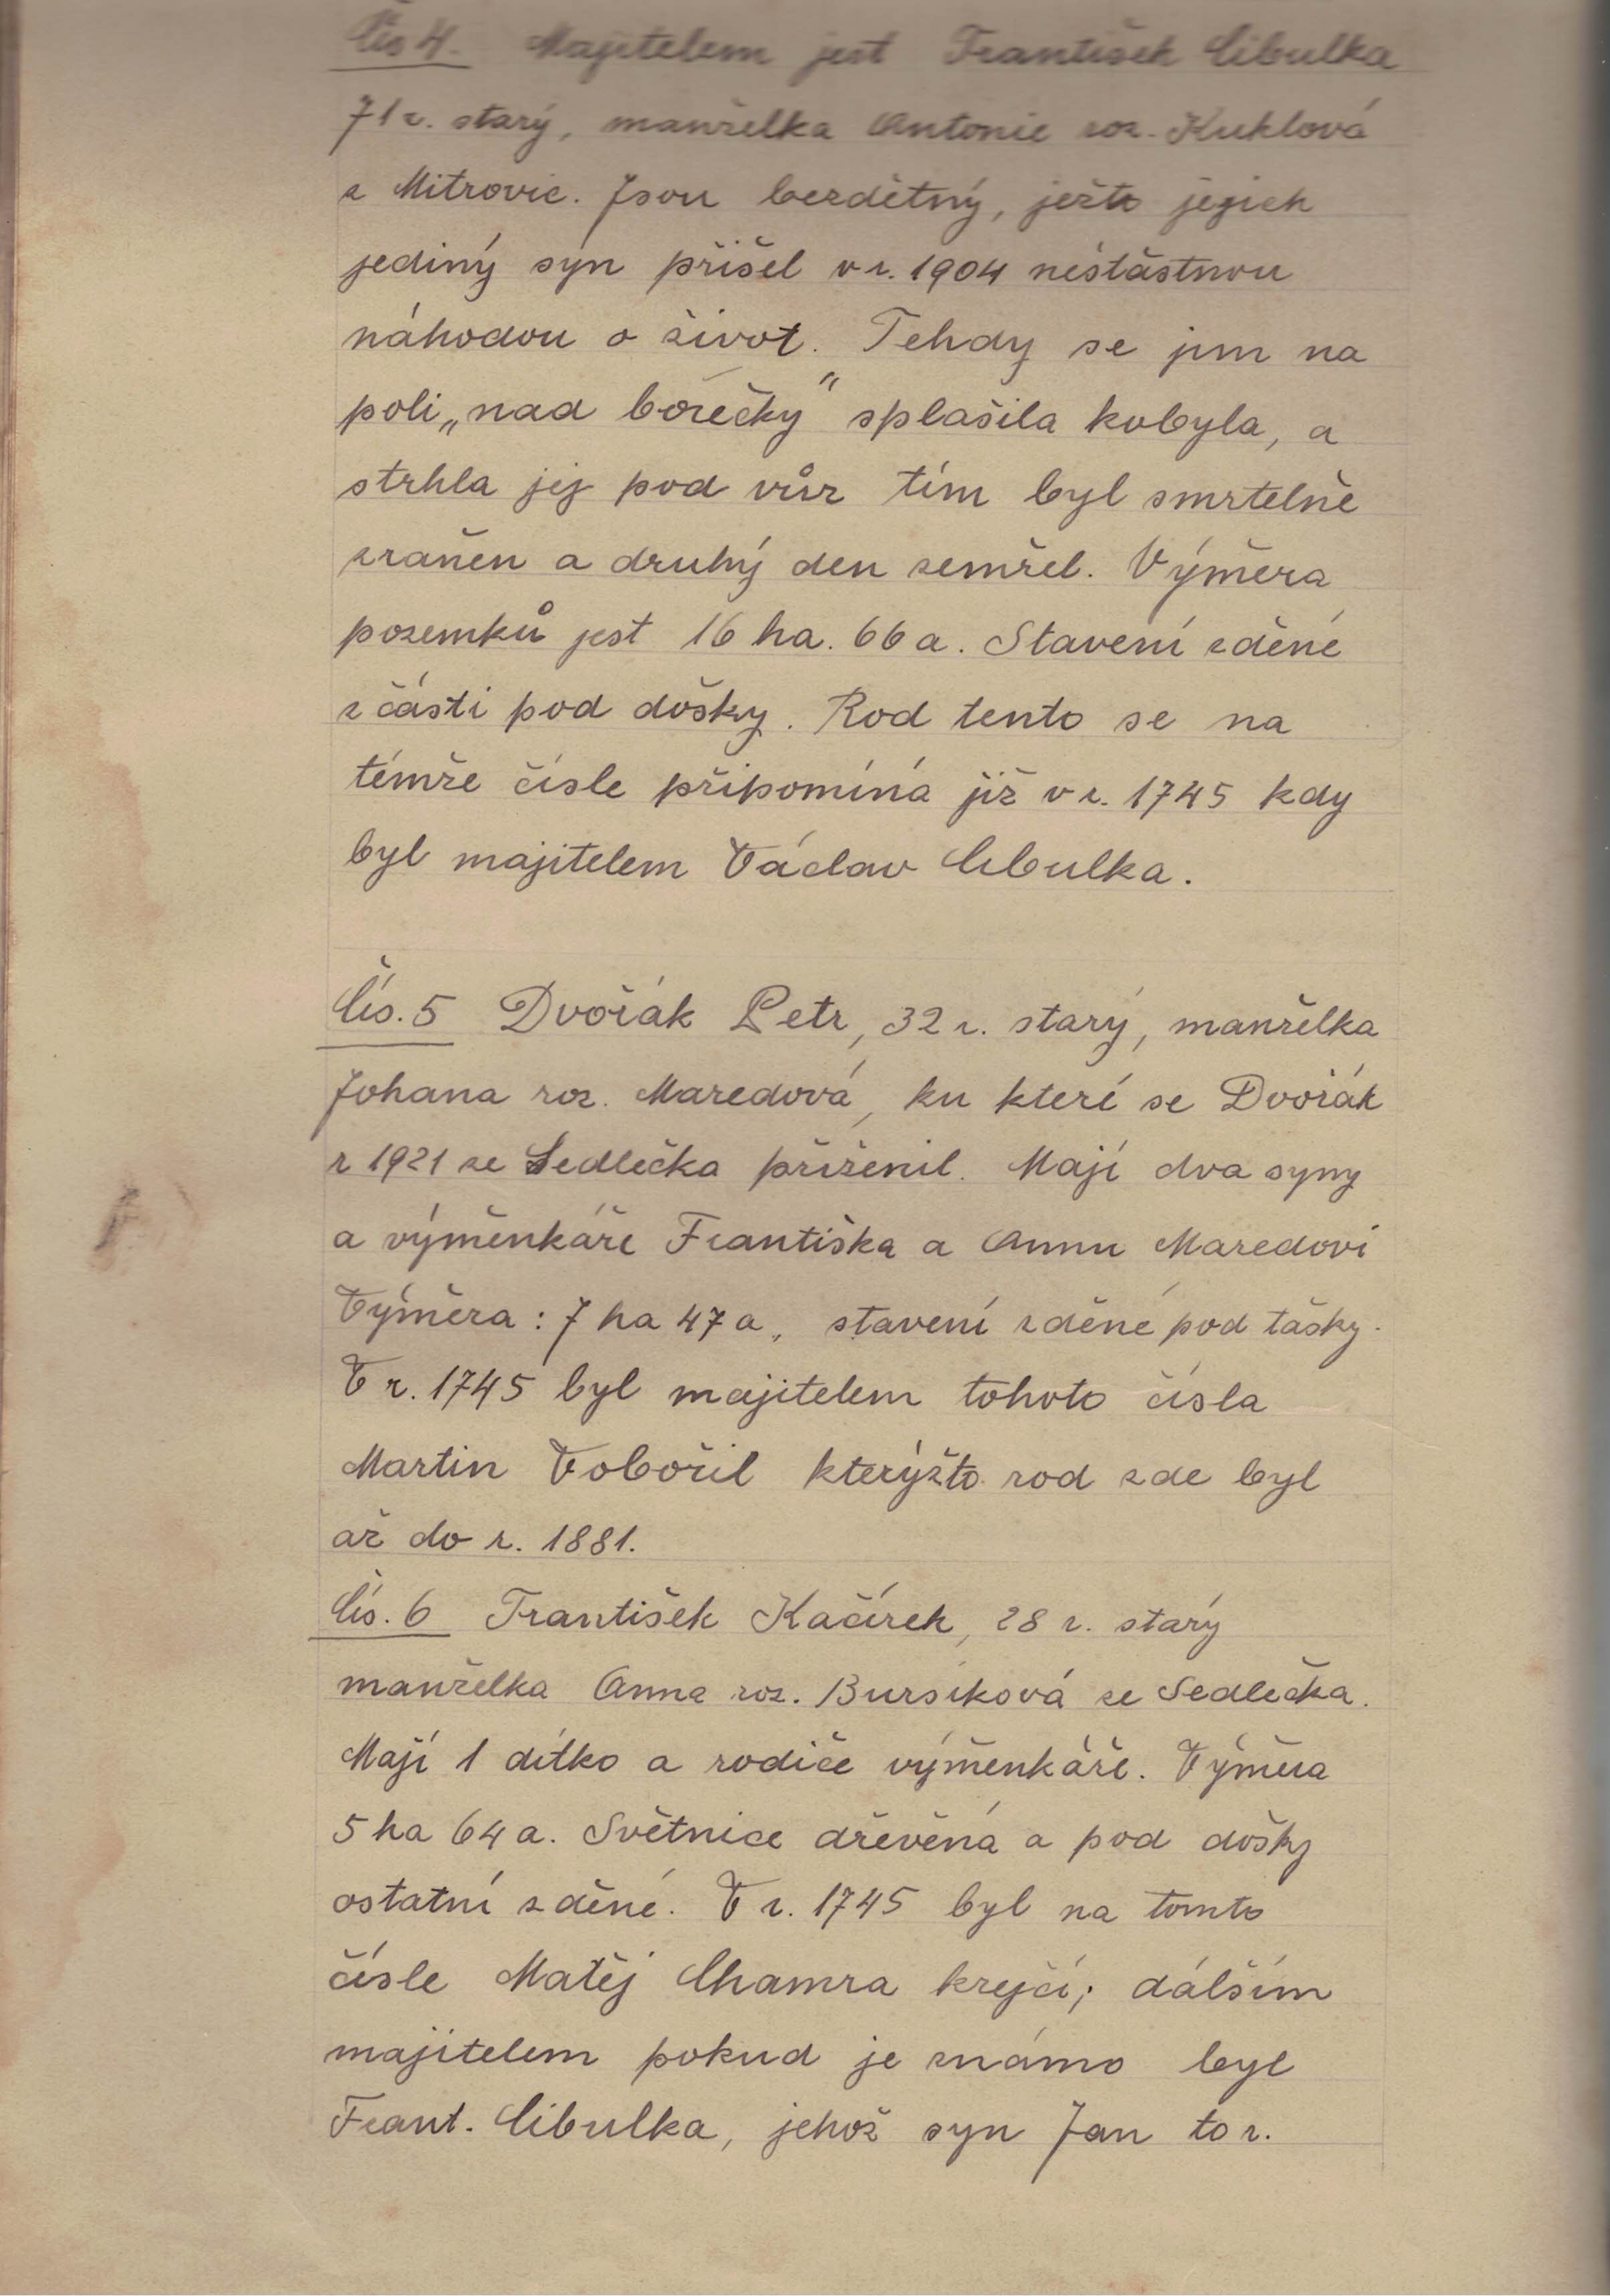 Čís 4. Majitelem jest František Cibulka
71 r. starý, manželka Antonie roz. Kuklová
z Mitrovic. Jsou bezdětný, ježto jejich
jediný syn přišel v r. 1904 nešťastnou
náhodou o život. Tehdy se jim na
poli „nad borečky“ splašila kobyla, a
strhla jej pod vůz tím byl smrtelně
zraněn a druhý den zemřel. Výměra
pozemků jest 16 ha. 66 a. Stavení zděné
z části pod došky. Rod tento se na
témže čísle připomíná již v r. 1745 kdy
byl majitelem Václav Cibulka.
Čís. 5 Dvořák Petr, 32 r. starý, manželka
Johana roz. Maredová, ku které se Dvořák
r 1921 ze Sedlečka přiženil. Mají dva syny
a výměnkáře Františka a Annu Maredovi
Výměra: 7 ha 47 a, stavení zděné pod tašky.
V r. 1745 byl majitelem tohoto čísla
Martin Vobořil kterýžto rod zde byl
až do r. 1881.
Čís. 6 František Kačírek, 28 r. starý
manželka Anna roz. Bursíková ze Sedlečka.
Mají 1 dítko a rodiče výměnkáře. Výměra
5 ha 64 a. Světnice dřevěná a pod došky
ostatní zděné. V r. 1745 byl na tomto
čísle Matěj Chamra krejčí; dálším
majitelem pokud je známo byl
Frant. Cibulka, jehož syn Jan to r.